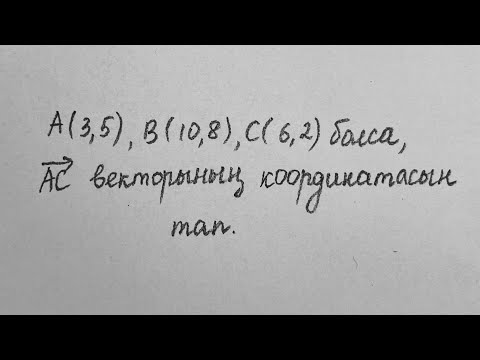 A(3,5), B(10,8), C(6,2) болса,
AC векторының координатасын
тап.